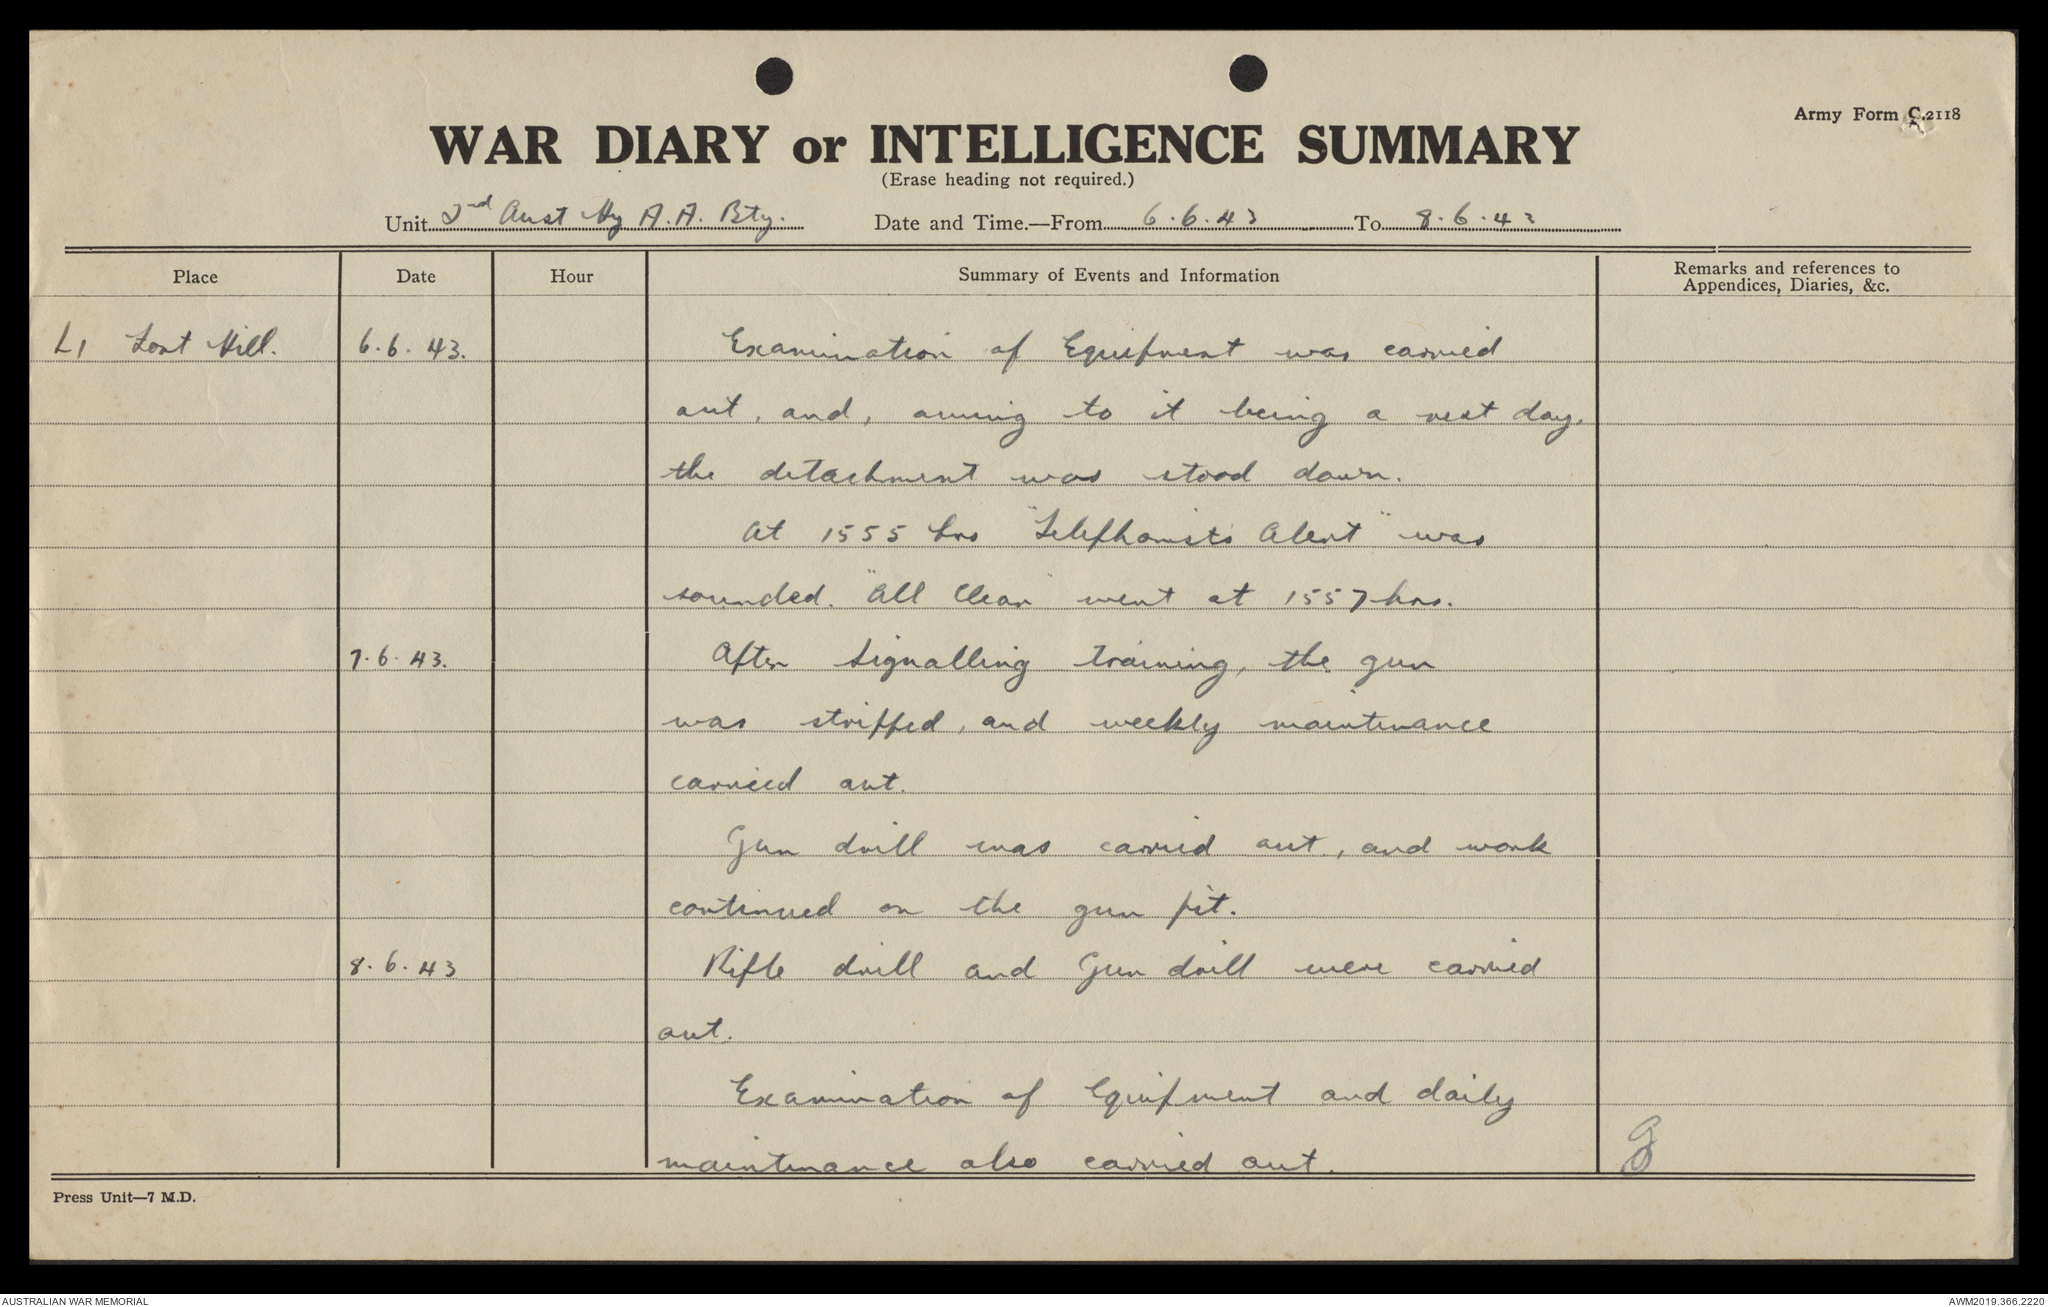 Army Form C.2118
WAR DIARY or INTELLIGENCE SUMMARY
(Erase heading not required.)
Unit 2nd Aust Hy A.A. Bty. Date and Time.—From 6.6.43 To 8.6.43
Place Date Hour Summary of Events and Information Remarks and references to Appendices, Diaries, &c.
L1 Fort Hill. 6.6.43. Examination of Equipment was carried
out, and, owing to it being a rest day,
the detachment was stood down.
At 1555 hrs "Telephonists Alert" was
sounded. "All Clear" went at 1557 hrs.
7.6.43. After signalling training, the gun
was stripped, and weekly maintenance
carried out.
Gun drill was carried out, and work
continued on the gun pit.
8.6.43 Rifle drill and Gun drill were carried
out.
Examination of Equipment and daily
maintenance also carried out.
Press Unit—7 M.D.
AUSTRALIAN WAR MEMORIAL AWM2019.366.2220